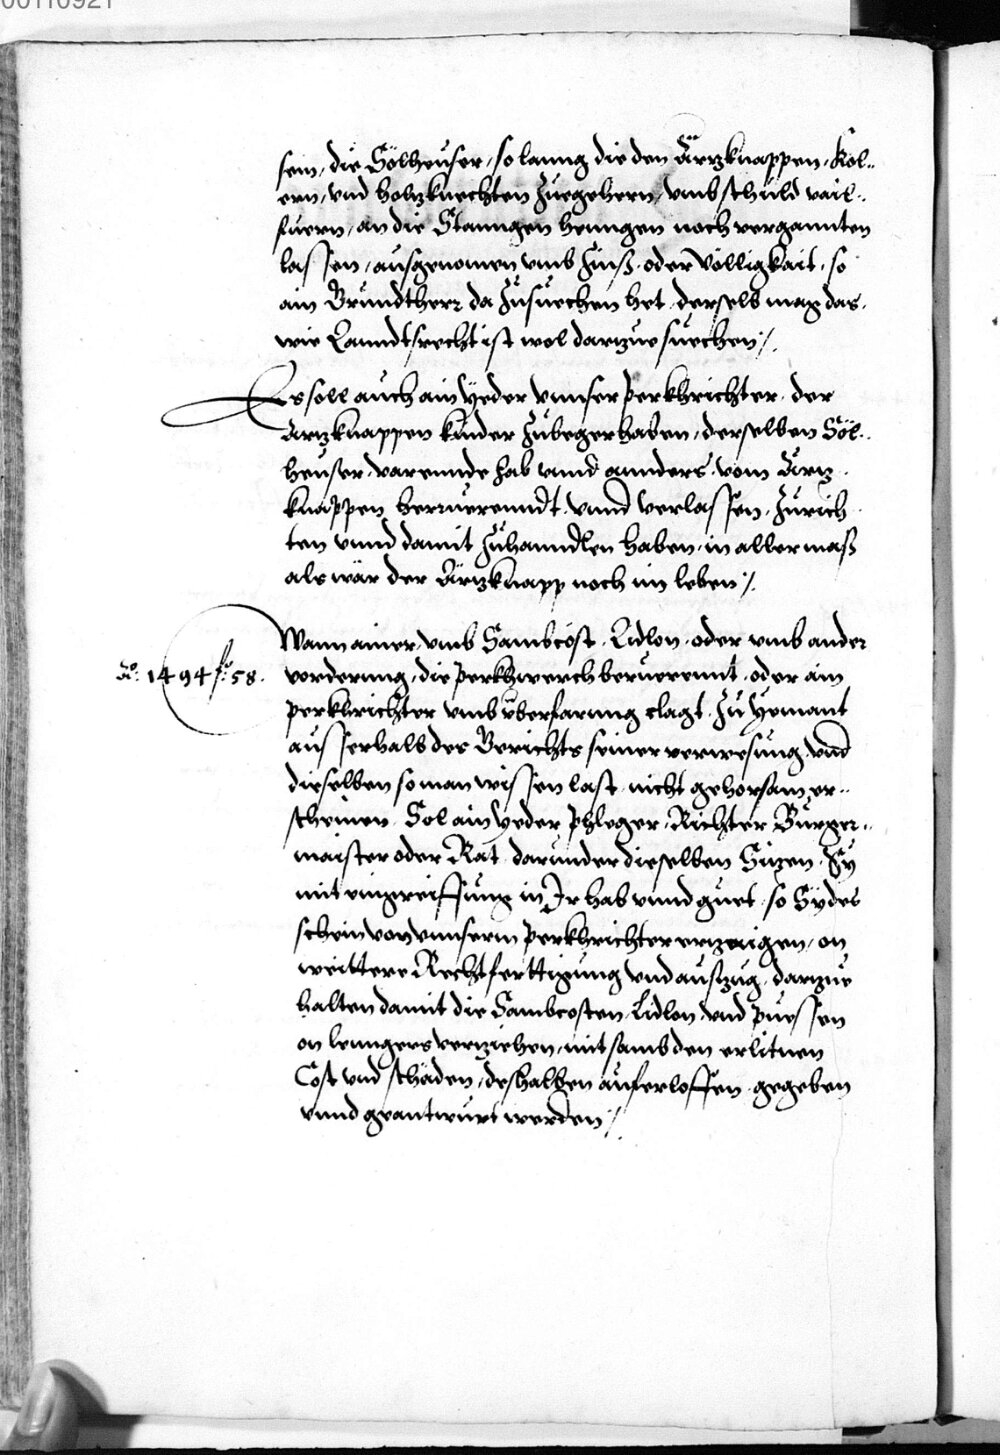 00110921
sein, die Sölheuser, so lanng die den Ärtzknappen, Kol-
ern, vnd holtzknechten zuegehern, vmb schuld vail-
fuern, an die Stanngen henngen noch vergannten
lassen, ausgenomen vmb Zinß oder völligkait, so
ain Grundtherr da zusuechen het, derselb mag das,
wie Lanndtsrecht ist wol dartzue suechen /.
Es soll auch ain yeder vnnser perkhrichter, der
Artzknappen kinder zubegerhaben, derselben Söl-
heuser, varennde hab vnnd annders, vom Ärtz
knappen herruerenndt, vnnd verlassen, zurich
ten vnnd damit zuhanndlen haben, in aller maß
als wär der Ärtzknapp noch im leben /.
Wann ainer, vmb Sambcost, Lidlon, oder vmb ander
vorderung, die perkhwerch beruerennt, oder ain
perkhrichter vmb überfarung clagt, zu yemant
ausserhalb des Gerichts seiner verwesung, vnd
dieselben so man wissen last, nicht gehorsam er-
scheinen, Sol ain yeder phleger, Richter, Burger-
maister oder Rat, darunder dieselben Sitzen, Sy
mit eingreiffung in Ir hab vnnd guet, so Sy des
schein von vnnserm perkhrichter ertzaigen, on
weittere Rechtferttigung vnd austzug, dartzue
halten damit die Sambcosten, Lidlon, vnd puessen
on lenngers vertziehen, mit sambt den erlitnen
Cost vnd schäden, deshalben auferloffen, gegeben
vnnd geantwurt werden /.
Ao: 1494 fo: 58.